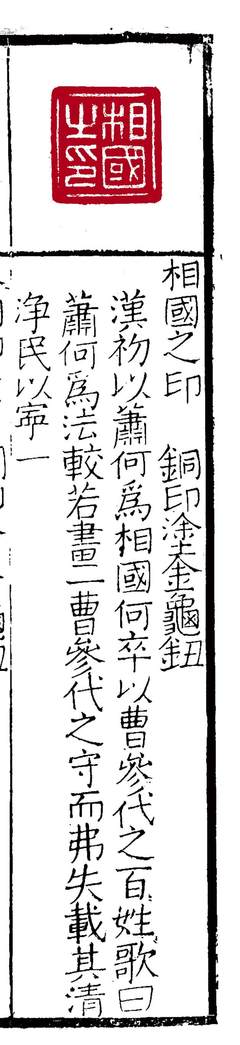 相國之印
相國之印　銅印塗金龜鈕
漢初以蕭何爲相國何卒以曹參代之百姓歌曰
蕭何爲法較若畫一曹參代之守而弗失載其清
淨民以寧一